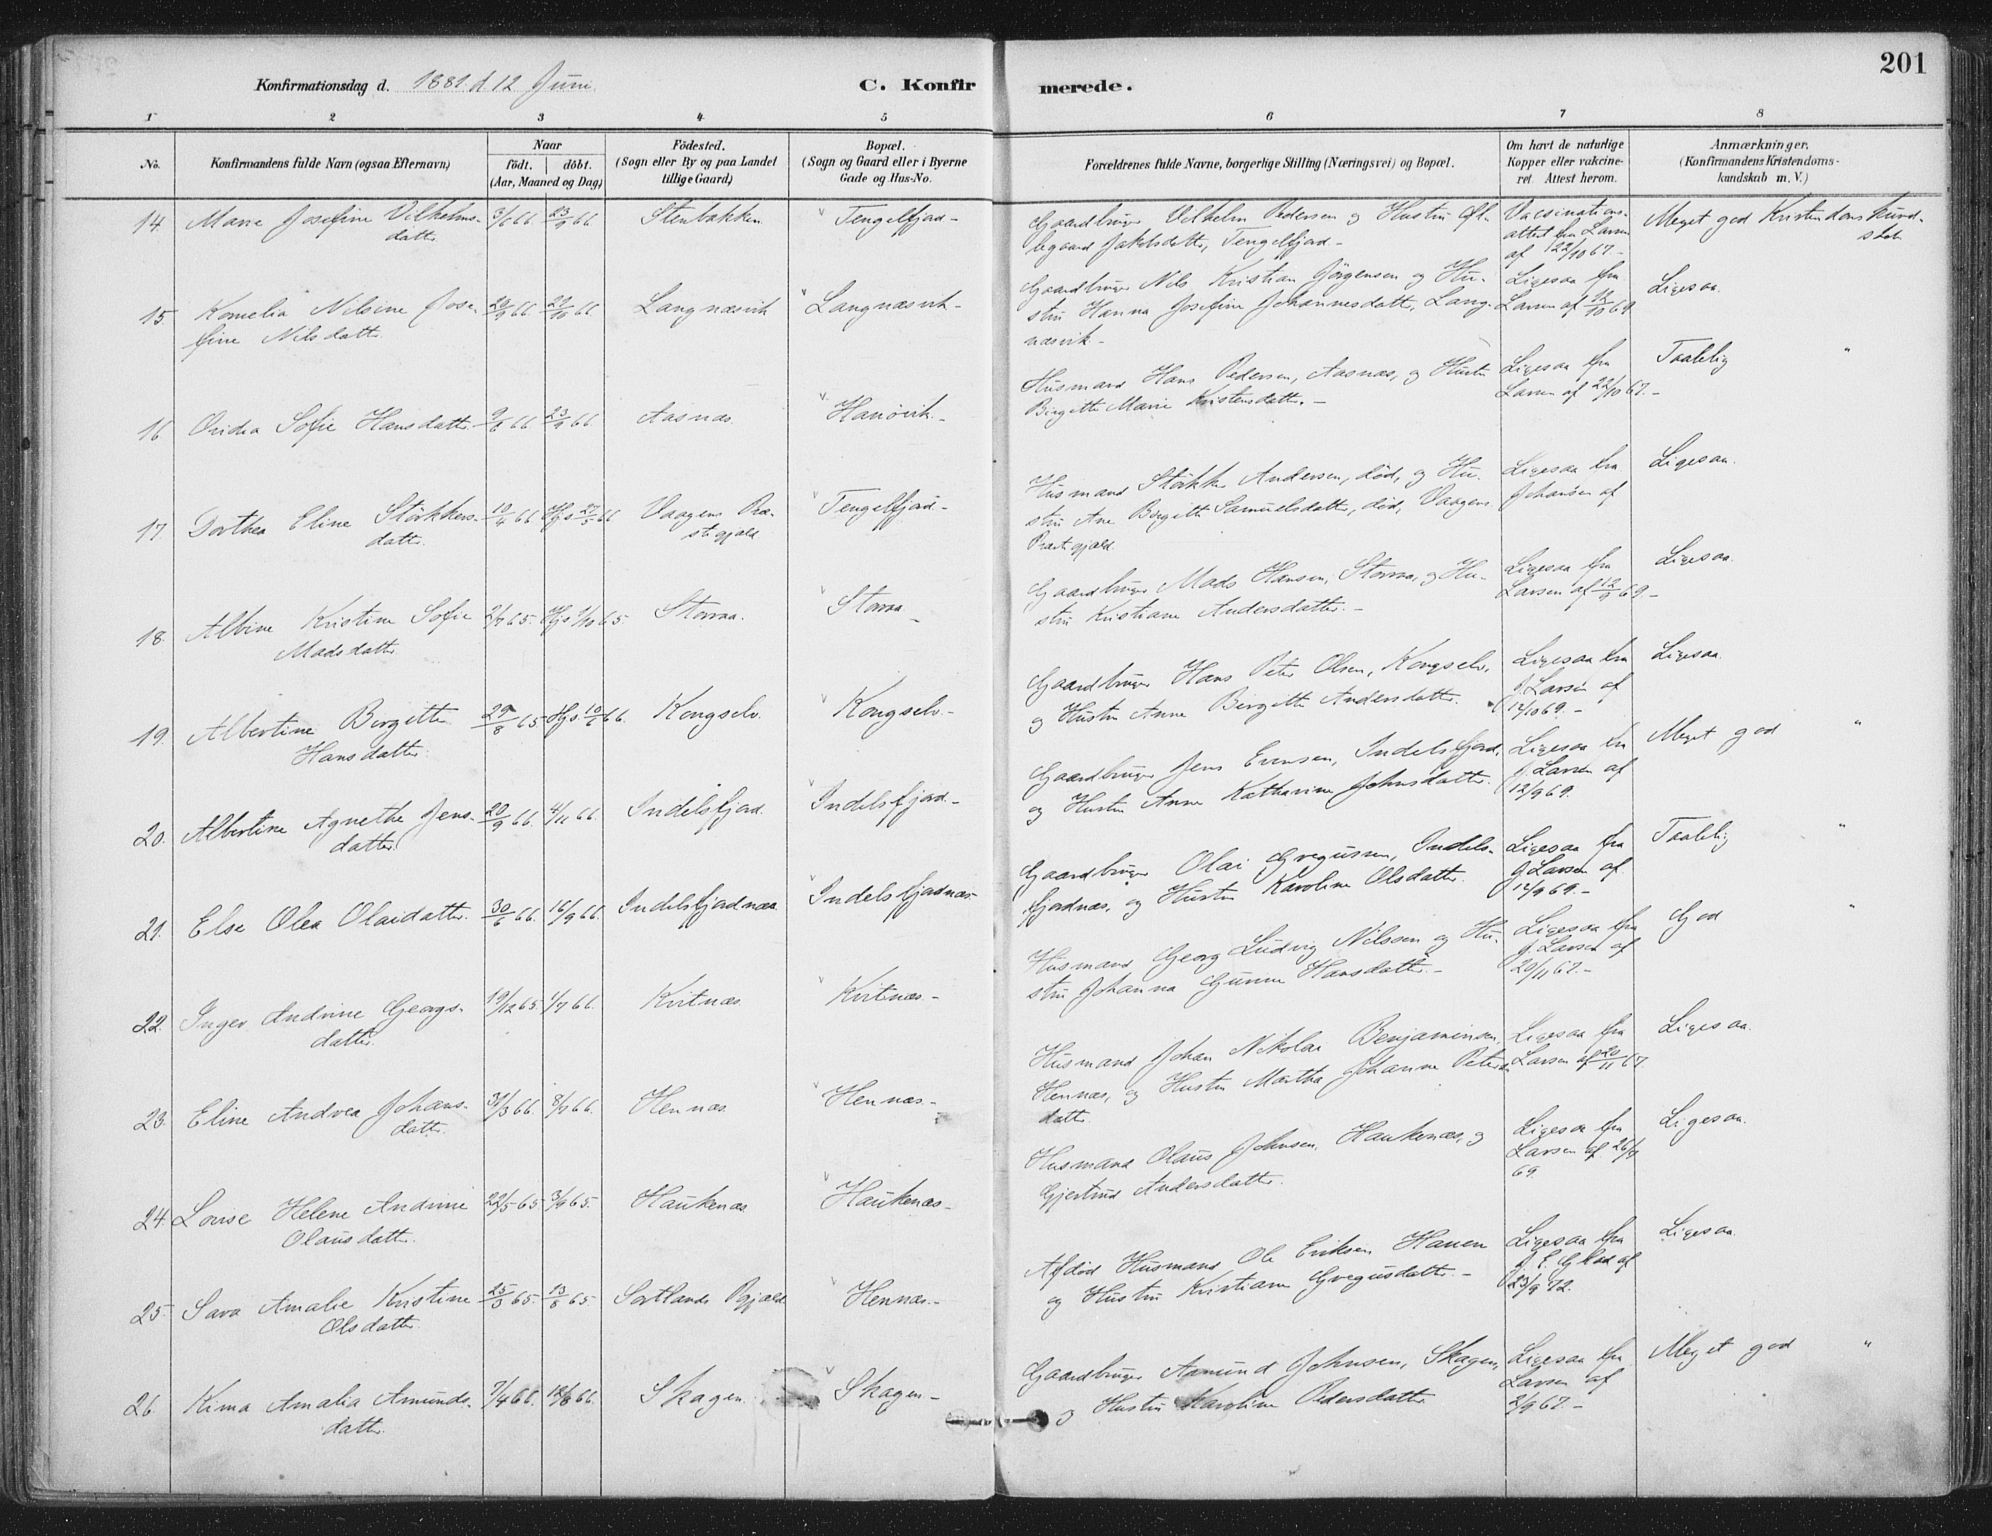 201
Konfirmationsdag d. 1881 d 12 Juni. C. Konfirmerede.
1 2 3 4 5 6 7 8
No.
Konfirmandens fulde Navn (ogsaa Efternavn)
Naar
födt. döbt.
(Aar, Maaned og Dag)
Födested.
(Sogn eller By og paa Landet
tillige Gaard)
Bopæl.
(Sogn og Gaard eller i Byerne
Gade og Hus-No.
Forældrenes fulde Navne, borgerlige Stilling (Næringsvei) og Bopæl.
Om havt de naturlige
Kopper eller vakcine-
ret. Attest herom.
Anmærkninger.
(Konfirmandens Kristendoms-
kundskab m. V.)
14. Marie Josefine Vilhelms- 3/6 66 23/9 66 Stenbakken Tengelfjord-
datter
Gaardbruger Vilhelm Pedersen og Hustru
Jakobsdatter, Tengelfjord-
Vacsinations-
attest fra Larsen
af 22/10 67-
Meget god Kristendomskund-
skab
15. Kornelia Nilsine Jose- 20/9 66 22/10 66 Langnæsvik Langnæsvik-
fine Nilsdatter
Gaardbruger Nils Kristian Jörgensen og Hu-
stru Hanna Josefine Johannesdatter, Lang-
næsvik-
Ligesaa fra
Larsen af 12/10 69
Ligesaa.
16 Ovidia Sofie Hansdatter 9/6 66 23/9 66 Aasnæs Hanövik-
Husmand Hans Pedersen, Aasnæs, og Hustru
Birgitte Marie Kristensdatter.-
Ligesaa fra
Larsen af 22/10 67.-
Taalelig "
17. Dorthea Eline Störkkers- 10/4 66 Hjs 27/5 66 Vaagens Præ- Tengelfjord-
datter. stegjæld
Husmand Störkker Andersen, död, og Hu-
stru Ane Birgitte Samuelsdatter, död, Vaagens
Præstegjæld
Ligesaa fra
Johansen af
Ligesaa.
18. Albine Kristine Sofie 2/7 65. Hjs 1/10 65. Storvaa. Storvaa
Madsdatter
Gaardbruger Mads Hansen, Storvaa, og Hu-
stru Kristiane Andersdatter.-
Ligesaa fra
Larsen af 12/9 69-
Ligesaa.
19. Albertine Birgitte 29/8 65 Hjs. 10/6 66. Kongselv Kongselv-
Hansdatter
Gaardbruger Hans Peter Olsen, Kongselv,
og Hustru Anne Birgitte Andersdatter.
Ligesaa fra
J. Larsen af
12/10 69.-
Ligesaa.
20. Albertine Agnethe Jens- 20/9 66. 4/11 66. Indelsfjord. Indelsfjord-
datter
Gaardbruger Jens Evensen, Indelsfjord,
og Hustru Anne Katharine Johnsdatter.
Ligesaa fra
J. Larsen af
12/9 69.
Meget god "
21. Else Olea Olaidatter. 30/6 66. 16/9 66. Indelsfjordnæs Indelsfjordnæs-
Gaardbruger Olai Gregussen, Indels-
fjordnæs, og Hustru Karoline Olsdatter.
Ligesaa fra
J. Larsen af
12/9 69.-
Taalelig "
22. Inger Andrine Georgs- 19/12 65. 1/7 66. Kvitnæs Kvitnæs.-
datter.
Husmand Georg Ludvig Nilssen og Hu-
stru Johanna Gurine Hansdatter.-
Ligesaa fra
J. Larsen af
20/11 67.-
God "
23. Eline Andrea Johans- 31/3 66. 8/7 66. Hennæs Hennæs-
datter.
Husmand Johan Nikolai Benjaminsen,
Hennæs, og Hustru Martha Johanne Peters-
datter
Ligesaa fra
Larsen af 20/11 67.
Ligesaa.
24. Lovise Helene Andrine 22/5 65 3/9 65. Haukenæs Haukenæs-
Olausdatter.
Husmand Olaus Johnsen, Haukenæs, og
Gjertrud Andersdatter.
Ligesaa fra
Larsen af 26/9
69.
Ligesaa.
25. Sara Amalie Kristine 25/3 65. 13/8 65. Sortlands Pgjæld Hennæs.-
Olsdatter.
Afdöd Husmand Ole Eriksen Hauen
og Hustru Kristiane Gregusdatter.-
Ligesaa fra
af
23/9 72.
Ligesaa.
26 Kima Amalia Amunds- 7/4 66. 12/8 66. Skagen. Skagen-
datter.
Gaardbruger Amund Johnsen, Skagen,
og Hustru Karoline Pedersdatter
Ligesaa fra
Larsen af
2/9 67.-
Meget god "